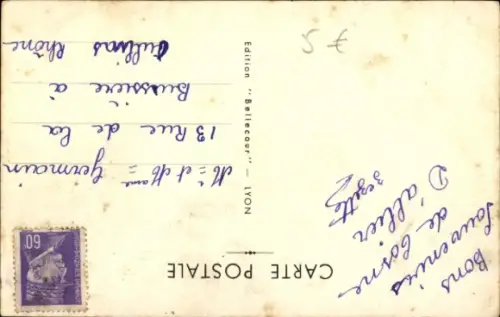 CARTE POSTALE
Bons
Souvenirs
de Cosne
D'allier
zezette
Edition "Bellecour" — LYON
Mr et Mme Germain
13 Rue de la
Bussiere à
Oullins Rhône
60
5 €